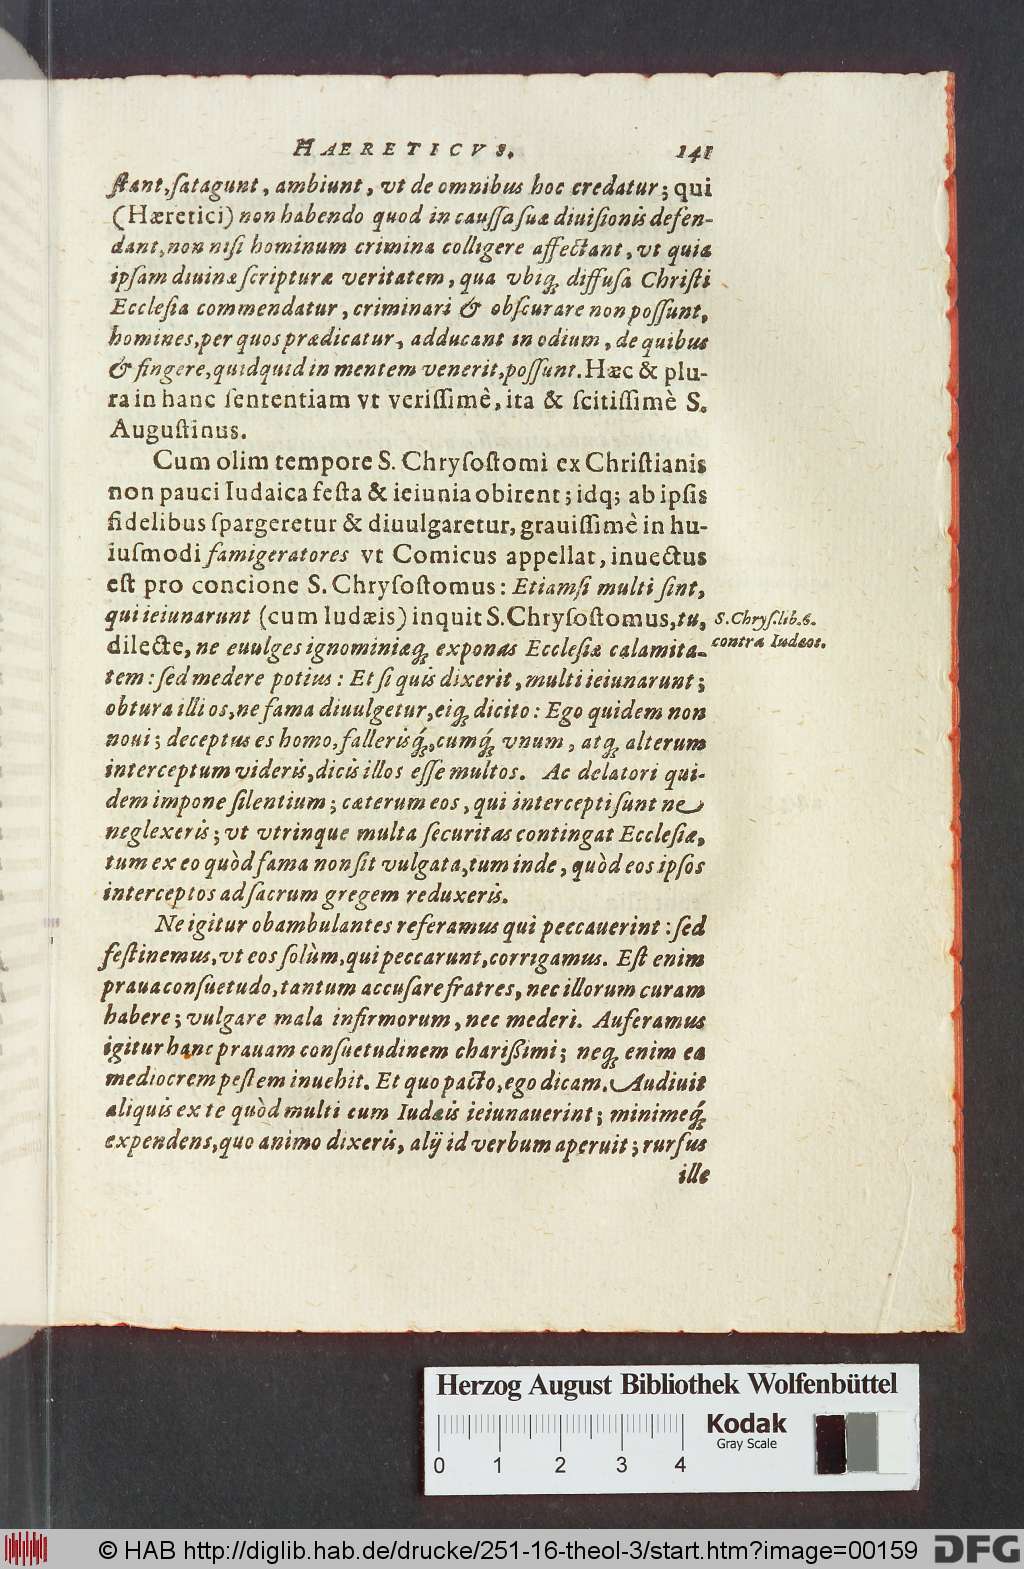 HAERETICVS. 141
ſtant, ſatagunt, ambiunt, vt de omnibus hoc credatur; qui
(Hæretici) non habendo quod in cauſſa ſuæ diuiſionis defen-
dant, non niſi hominum crimina colligere affectant, vt quia
ipſam diuinæ ſcripturæ veritatem, qua vbiq́; diffuſa Chriſti
Eccleſia commendatur, criminari & obſcurare non poſſunt,
homines, per quos prædicatur, adducant in odium, de quibus
& fingere, quidquid in mentem venerit, poſſunt. Hæc & plu-
ra in hanc ſententiam vt veriſſimè, ita & ſcitiſſimè S.
Auguſtinus.
Cum olim tempore S. Chryſoſtomi ex Chriſtianis
non pauci Iudaica feſta & ieiunia obirent; idq; ab ipſis
fidelibus ſpargeretur & diuulgaretur, grauiſſimè in hu-
iuſmodi famigeratores vt Comicus appellat, inuectus
eſt pro concione S. Chryſoſtomus: Etiamſi multi ſint,
qui ieiunarunt (cum Iudæis) inquit S. Chryſoſtomus, tu,
dilecte, ne euulges ignominiáq; exponas Eccleſiæ calamita-
tem: ſed medere potius: Et ſi quis dixerit, multi ieiunarunt;
obtura illi os, ne fama diuulgetur, eiq; dicito: Ego quidem non
noui; deceptus es homo, fallerisq́;, cumq́; vnum, atq; alterum
interceptum videris, dicis illos eſſe multos. Ac delatori qui-
dem impone ſilentium; cæterum eos, qui intercepti ſunt ne
neglexeris; vt vtrinque multa ſecuritas contingat Eccleſiæ,
tum ex eo quòd fama non ſit vulgata, tum inde, quòd eos ipſos
interceptos ad ſacrum gregem reduxeris.
Ne igitur obambulantes referamus qui peccauerint: ſed
feſtinemus, vt eos ſolùm, qui peccarunt, corrigamus. Eſt enim
praua conſuetudo, tantum accuſare fratres, nec illorum curam
habere; vulgare mala infirmorum, nec mederi. Auferamus
igitur hanc prauam conſuetudinem charißimi; neq; enim ea
mediocrem peſtem inuehit. Et quo pacto, ego dicam. Audiuit
aliquis ex te quòd multi cum Iudæis ieiunauerint; minimeq́;
expendens, quo animo dixeris, alij id verbum aperuit; rurſus
ille
S. Chryſ. lib. 6.
contra Iudæos.
Herzog August Bibliothek Wolfenbüttel
0 1 2 3 4
Kodak
Gray Scale
© HAB http://diglib.hab.de/drucke/251-16-theol-3/start.htm?image=00159
DFG